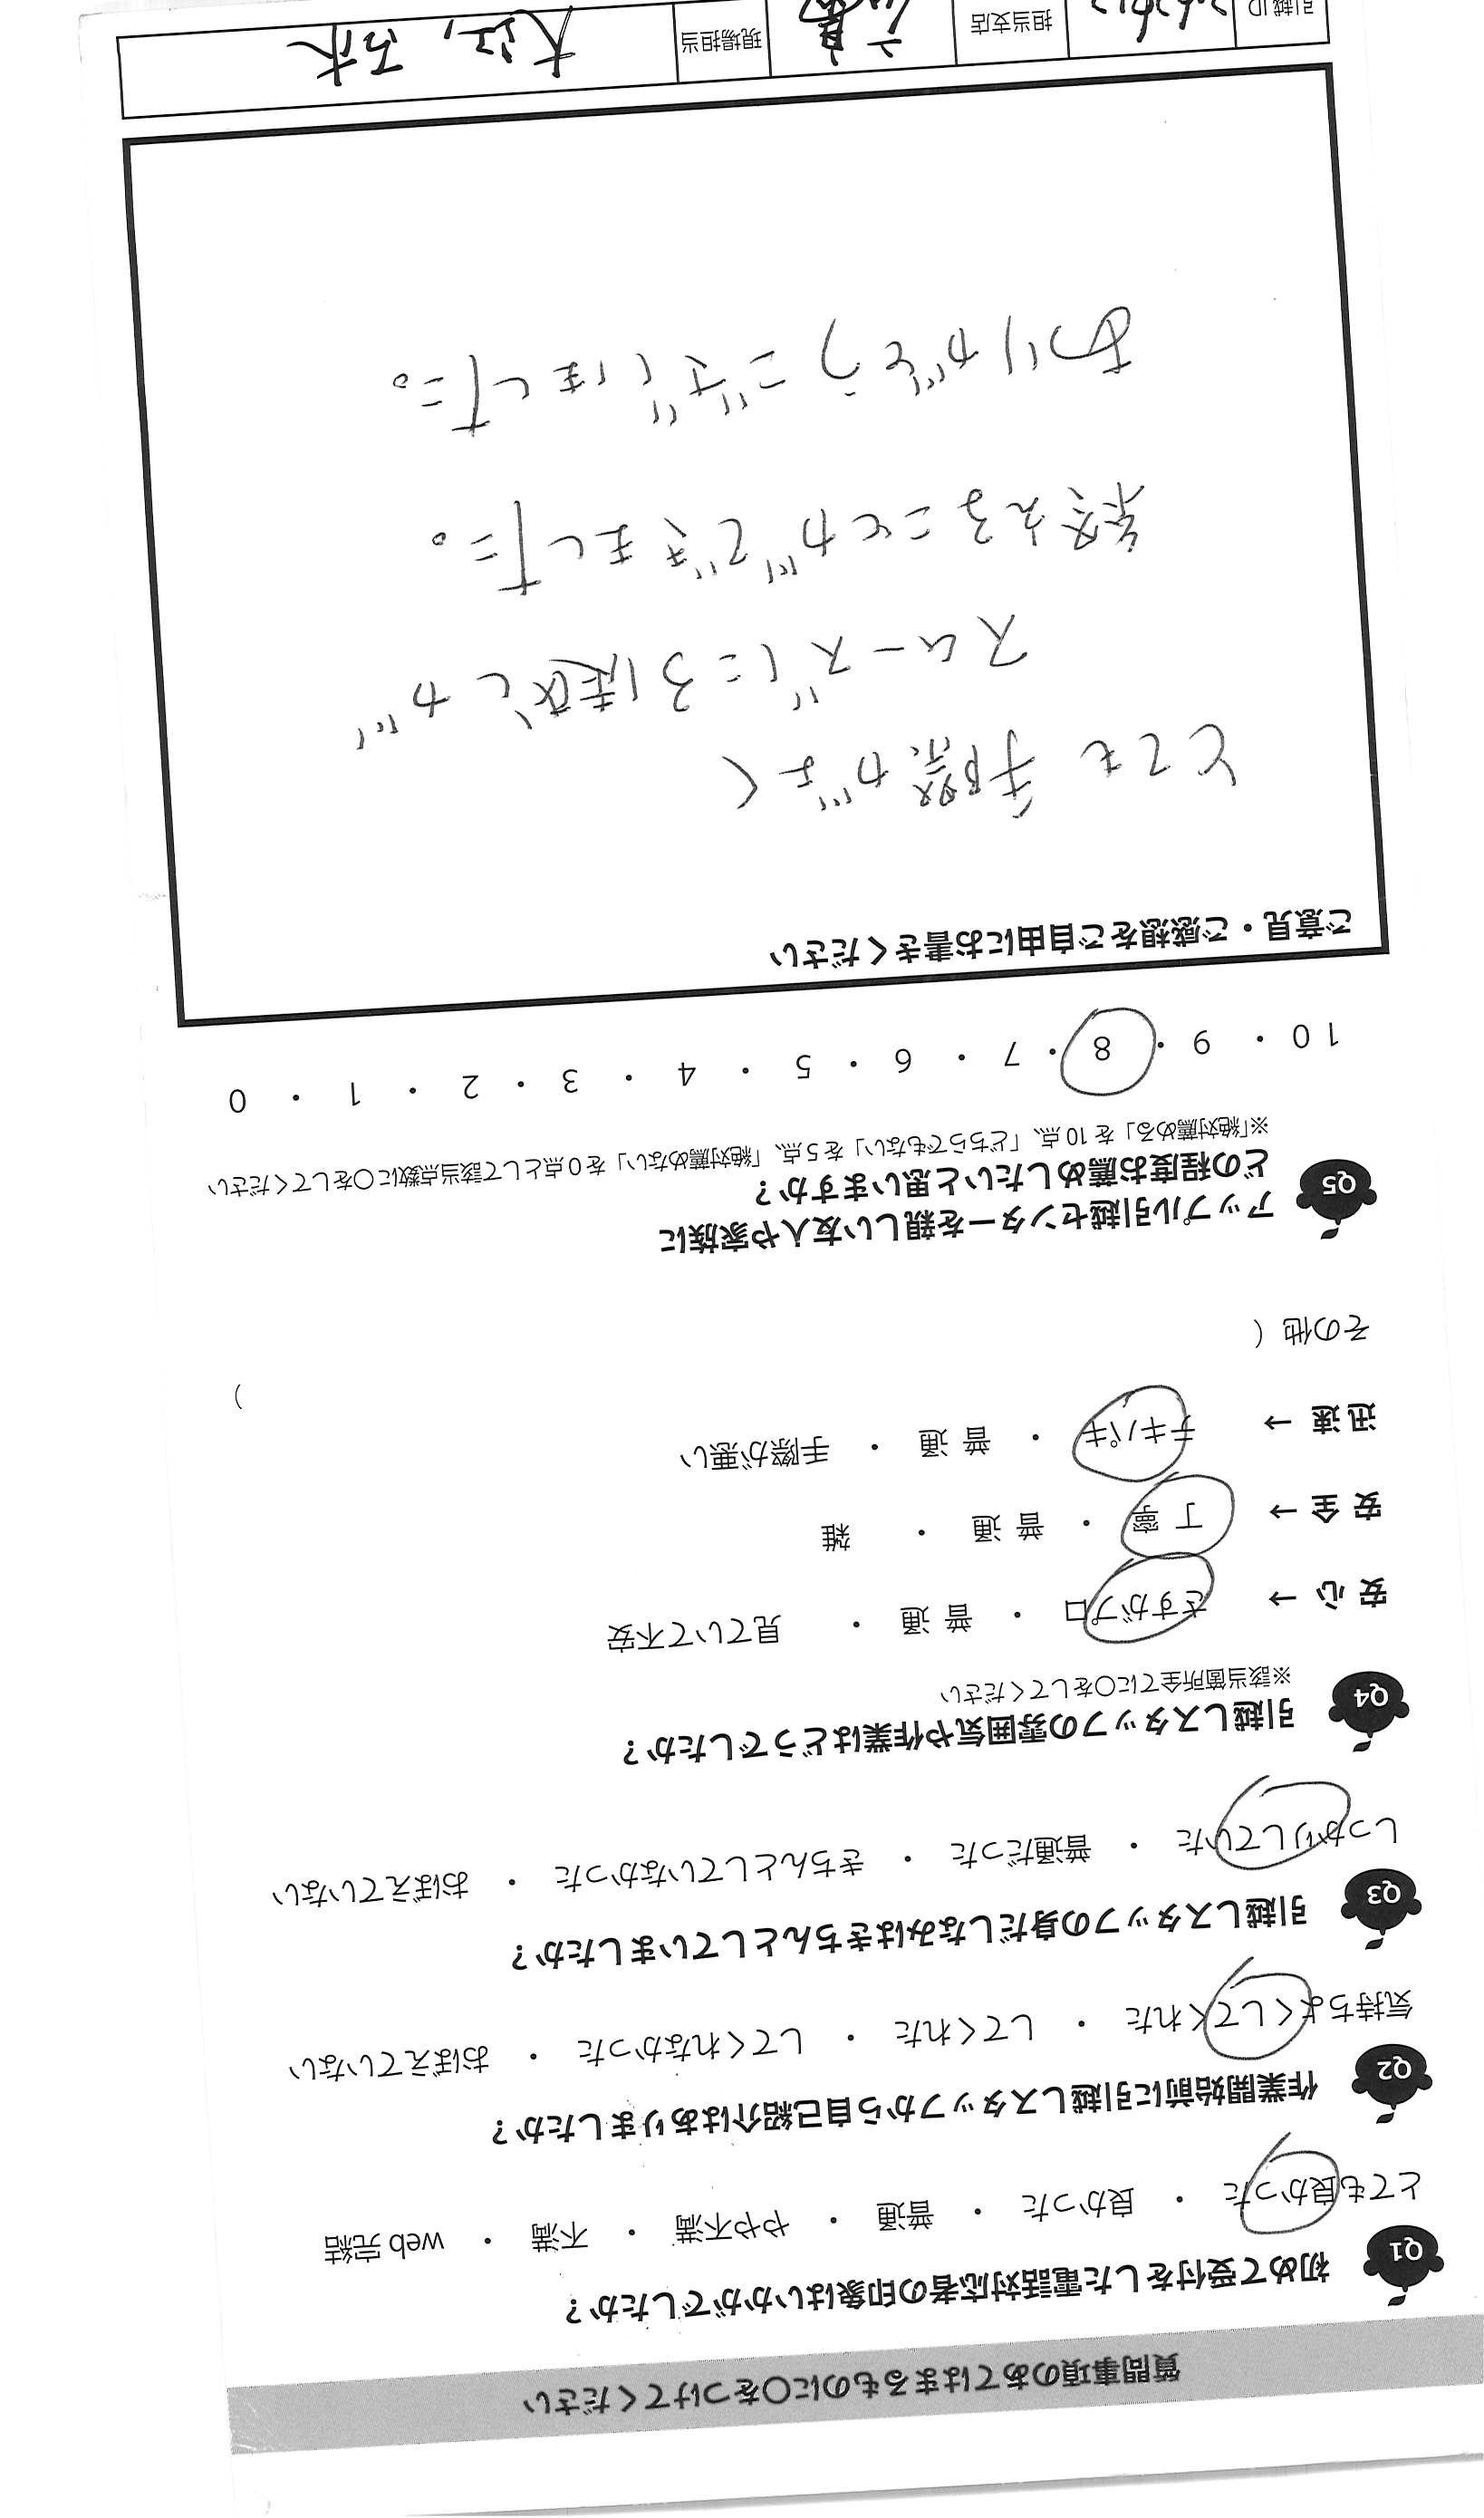 質問事項のあてはまるものに○をつけてください
Q1 初めて受付をした電話対応者の印象はいかがでしたか?
とても良かった ・ 良かった ・ 普通 ・ やや不満 ・ 不満 ・ web 完結
Q2 作業開始前に引越しスタッフから自己紹介はありましたか?
気持ちよくしてくれた ・ してくれた ・ してくれなかった ・ おぼえていない
Q3 引越しスタッフの身だしなみはきちんとしていましたか?
しっかりしていた ・ 普通だった ・ きちんとしていなかった ・ おぼえていない
Q4 引越しスタッフの雰囲気や作業はどうでしたか?
※該当箇所全てに○をしてください
安 心 → さすがプロ ・ 普 通 ・ 見ていて不安
安 全 → 丁 寧 ・ 普 通 ・ 雑
迅 速 → テキパキ ・ 普 通 ・ 手際が悪い
その他 ( )
Q5 アップル引越センターを親しい友人や家族に
どの程度お薦めしたいと思いますか?
※「絶対薦める」を 10 点、「どちらでもない」を 5 点、「絶対薦めない」を 0 点として該当点数に○をしてください
10 ・ 9 ・ 8 ・ 7 ・ 6 ・ 5 ・ 4 ・ 3 ・ 2 ・ 1 ・ 0
ご意見・ご感想をご自由にお書きください
とても 手際がよく
スムーズに引越しが
終えることができました。
ありがとうございました。
引越ID 担当支店 現場担当 大江,